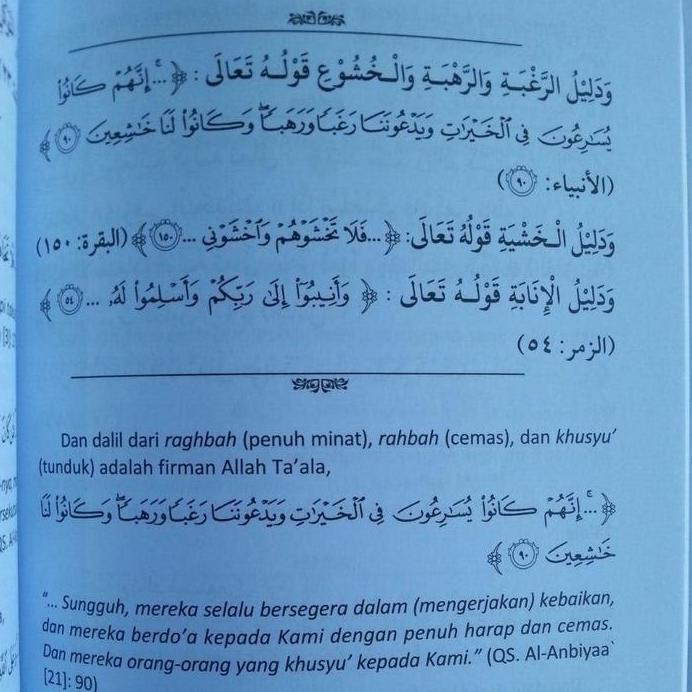 وَدَلِيْلُ الرَّغْبَةِ وَالرَّهْبَةِ وَالْخُشُوْعِ قَوْلُهُ تَعَالَى : ﴿ ...إِنَّهُمْ كَانُوا۟
يُسَٰرِعُونَ فِى ٱلْخَيْرَٰتِ وَيَدْعُونَنَا رَغَبًا وَرَهَبًا ۖ وَكَانُوا۟ لَنَا خَٰشِعِينَ ٩٠ ﴾
(الأنبياء: ٩٠)
وَدَلِيْلُ الْخَشْيَةِ قَوْلُهُ تَعَالَى: ﴿ ...فَلَا تَخْشَوْهُمْ وَٱخْشَوْنِى ... ١٥٠ ﴾ (البقرة: ١٥٠)
وَدَلِيْلُ الْإِنَابَةِ قَوْلُهُ تَعَالَى : ﴿ وَأَنِيبُوٓا۟ إِلَىٰ رَبِّكُمْ وَأَسْلِمُوا۟ لَهُۥ ... ٥٤ ﴾
(الزمر: ٥٤)
Dan dalil dari raghbah (penuh minat), rahbah (cemas), dan khusyu’
(tunduk) adalah firman Allah Ta’ala,
﴿ ...ۚ إِنَّهُمْ كَانُوا۟ يُسَٰرِعُونَ فِى ٱلْخَيْرَٰتِ وَيَدْعُونَنَا رَغَبًا وَرَهَبًا ۖ وَكَانُوا۟ لَنَا
خَٰشِعِينَ ٩٠ ﴾
“... Sungguh, mereka selalu bersegera dalam (mengerjakan) kebaikan,
dan mereka berdo’a kepada Kami dengan penuh harap dan cemas.
Dan mereka orang-orang yang khusyu’ kepada Kami.” (QS. Al-Anbiyaa`
[21]: 90)